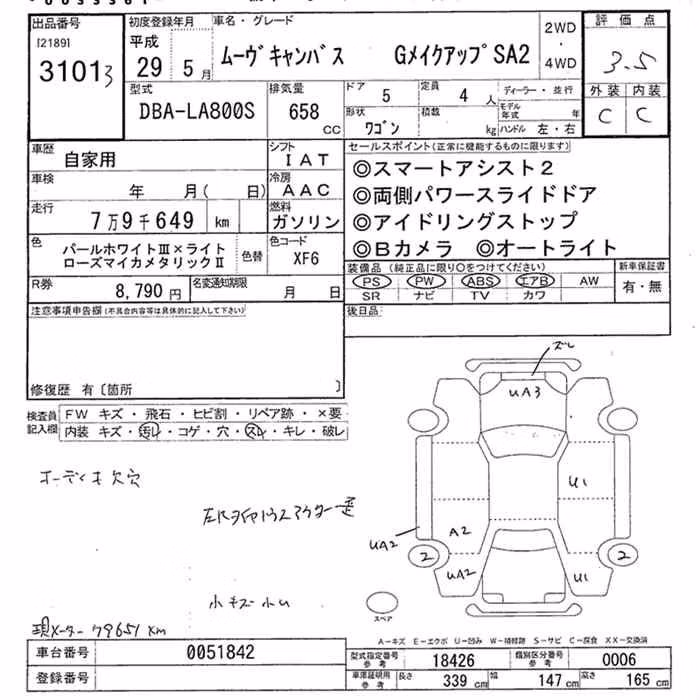 出品番号
[2189]
31013
初度登録年月
平成
29年 5月
車名・グレード
ムーヴキャンバス GメイクアップSA2
2WD
・
4WD
評価点
3.5
外装 内装
C C
型式
DBA-LA800S
排気量
658
CC
ドア
5
定員
4人
ディーラー・並行
モデル年式 年
形状
ワゴン
積載
kg
ハンドル 左・右
車歴
自家用
シフト
IAT
車検
年 月( 日)
冷房
AAC
走行
7万9千649 km
燃料
ガソリン
色
パールホワイトⅢ×ライト
ローズマイカメタリックⅡ
色替
色コード
XF6
R券
8,790円
名変通知期限
月 日
セールスポイント(正常に機能するものに限ります)
◎スマートアシスト2
◎両側パワースライドドア
◎アイドリングストップ
◎Bカメラ ◎オートライト
装備品(純正品に限り○をつけてください)
PS PW ABS エアB AW
SR ナビ TV カワ
新車保証書
有・無
注意事項申告欄(不具合内容等は具体的に記入して下さい)
後日品
修復歴 有〔箇所 〕
検査員記入欄
FW キズ・飛石・ヒビ割・リペア跡・×要
内装 キズ・汚レ・コゲ・穴・スレ・キレ・破レ
オーディオ欠穴
ズレ
UA3
U1
A2
UA2
UA2
U1
2
2
スペア
小キズ小U
現メーター 79651 km
A-キズ E-エクボ U-凹み W-補修跡 S-サビ C-腐食 XX-交換済
車台番号
0051842
登録番号
型式指定番号
参考
18426
類別区分番号
参考
0006
車庫証明用
参考
長さ 339 cm
幅 147 cm
高さ 165 cm